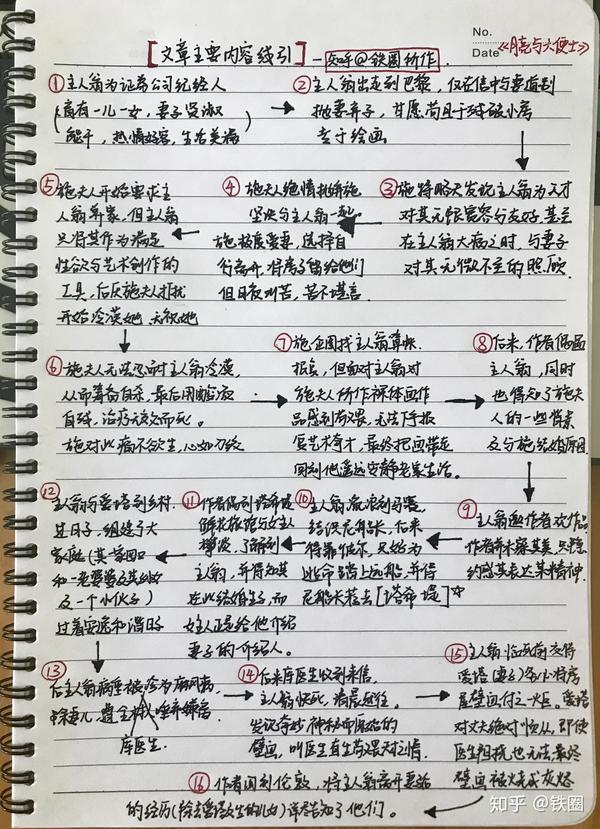 No.
Date
《月亮与六便士》
[文章主要内容线引]—知乎@铁圈所作.
① 主人翁为证券公司纪经人
(育有一儿一女，妻子贤淑
能干，热情好客，生活美满)
② 主人翁出走到巴黎，仅在信中与妻道别
抛妻弃子，甘愿苟且于残破小房
专于绘画
③ 施特略夫发现主人翁为天才
对其无限宽容与友好，甚至
在主人翁大病之时，与妻子
对其无微不至的照顾
④ 施夫人绝情抛弃施
坚决与主人翁一起.
施极度爱妻，选择自
行离开，将房子留给他们
但日夜艰苦，苦不堪言.
⑤ 施夫人开始要求主
人翁养家，但主人翁
只将其作为满足
性欲与艺术创作的
工具，后厌施夫人打扰
开始冷漠她，无视她
⑥ 施夫人无法忍耐主人翁冷漠，
从而筹备自杀，最后用
自残，治疗无效而死。
施对此痛不欲生，心如刀绞
⑦ 施企图找主人翁算帐.
报复，但面对主人翁对
施夫人所作裸体画作
品感到敬畏，无法下手报
复艺术奇才，最终把画带走
回到他遥远安静老家生活。
⑧ 后来，作者偶遇
主人翁，同时
也得知了施夫
人的一些背景
及与施结婚原因
⑨ 主人翁邀作者欢作品
作者并未察其美，只隐
约感其表达某精神.
⑩ 主人翁流浪到马赛，
结识尼船长，后来
得罪他尔，只好为
逃命踏上远船，并得
尼船长荐去[塔希堤]☆
⑪ 作者偶到塔希堤
鲜花旅馆与女主
攀谈，了解到
主人翁，并得知其
在此结婚生子，而
女主人正是给他介绍
妻子的介绍人。
⑫ 主人翁与爱塔到乡村.
过日子，组建了大
家庭(其家四口
和一老婆婆及其孙女
及一个小伙子)
过着安逸和谐日子
⑬ 后主人翁病重被诊为麻风病，
除妻儿，遭全村人唾弃嫌弃
库医生.
⑭ 后来库医生收到来信，
主人翁快死，请最赶往.
发现奇妙神秘而原始的
壁画，叫医生有生敬畏对之情.
⑮ 主人翁临死前交待
爱塔(妻子)务必将房
屋壁画付之一炬。爱塔
对丈夫绝对顺从，即使
医生阻挠也无法，最终
壁画被火烧成灰烬
⑯ 作者回到伦敦，将主人翁离开妻始
的经历(除去爱塔及生的儿女)详尽告知了他们。
知乎 @铁圈